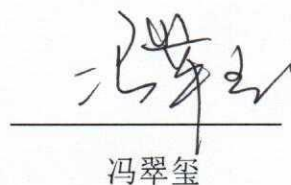 冯翠玺
冯翠玺